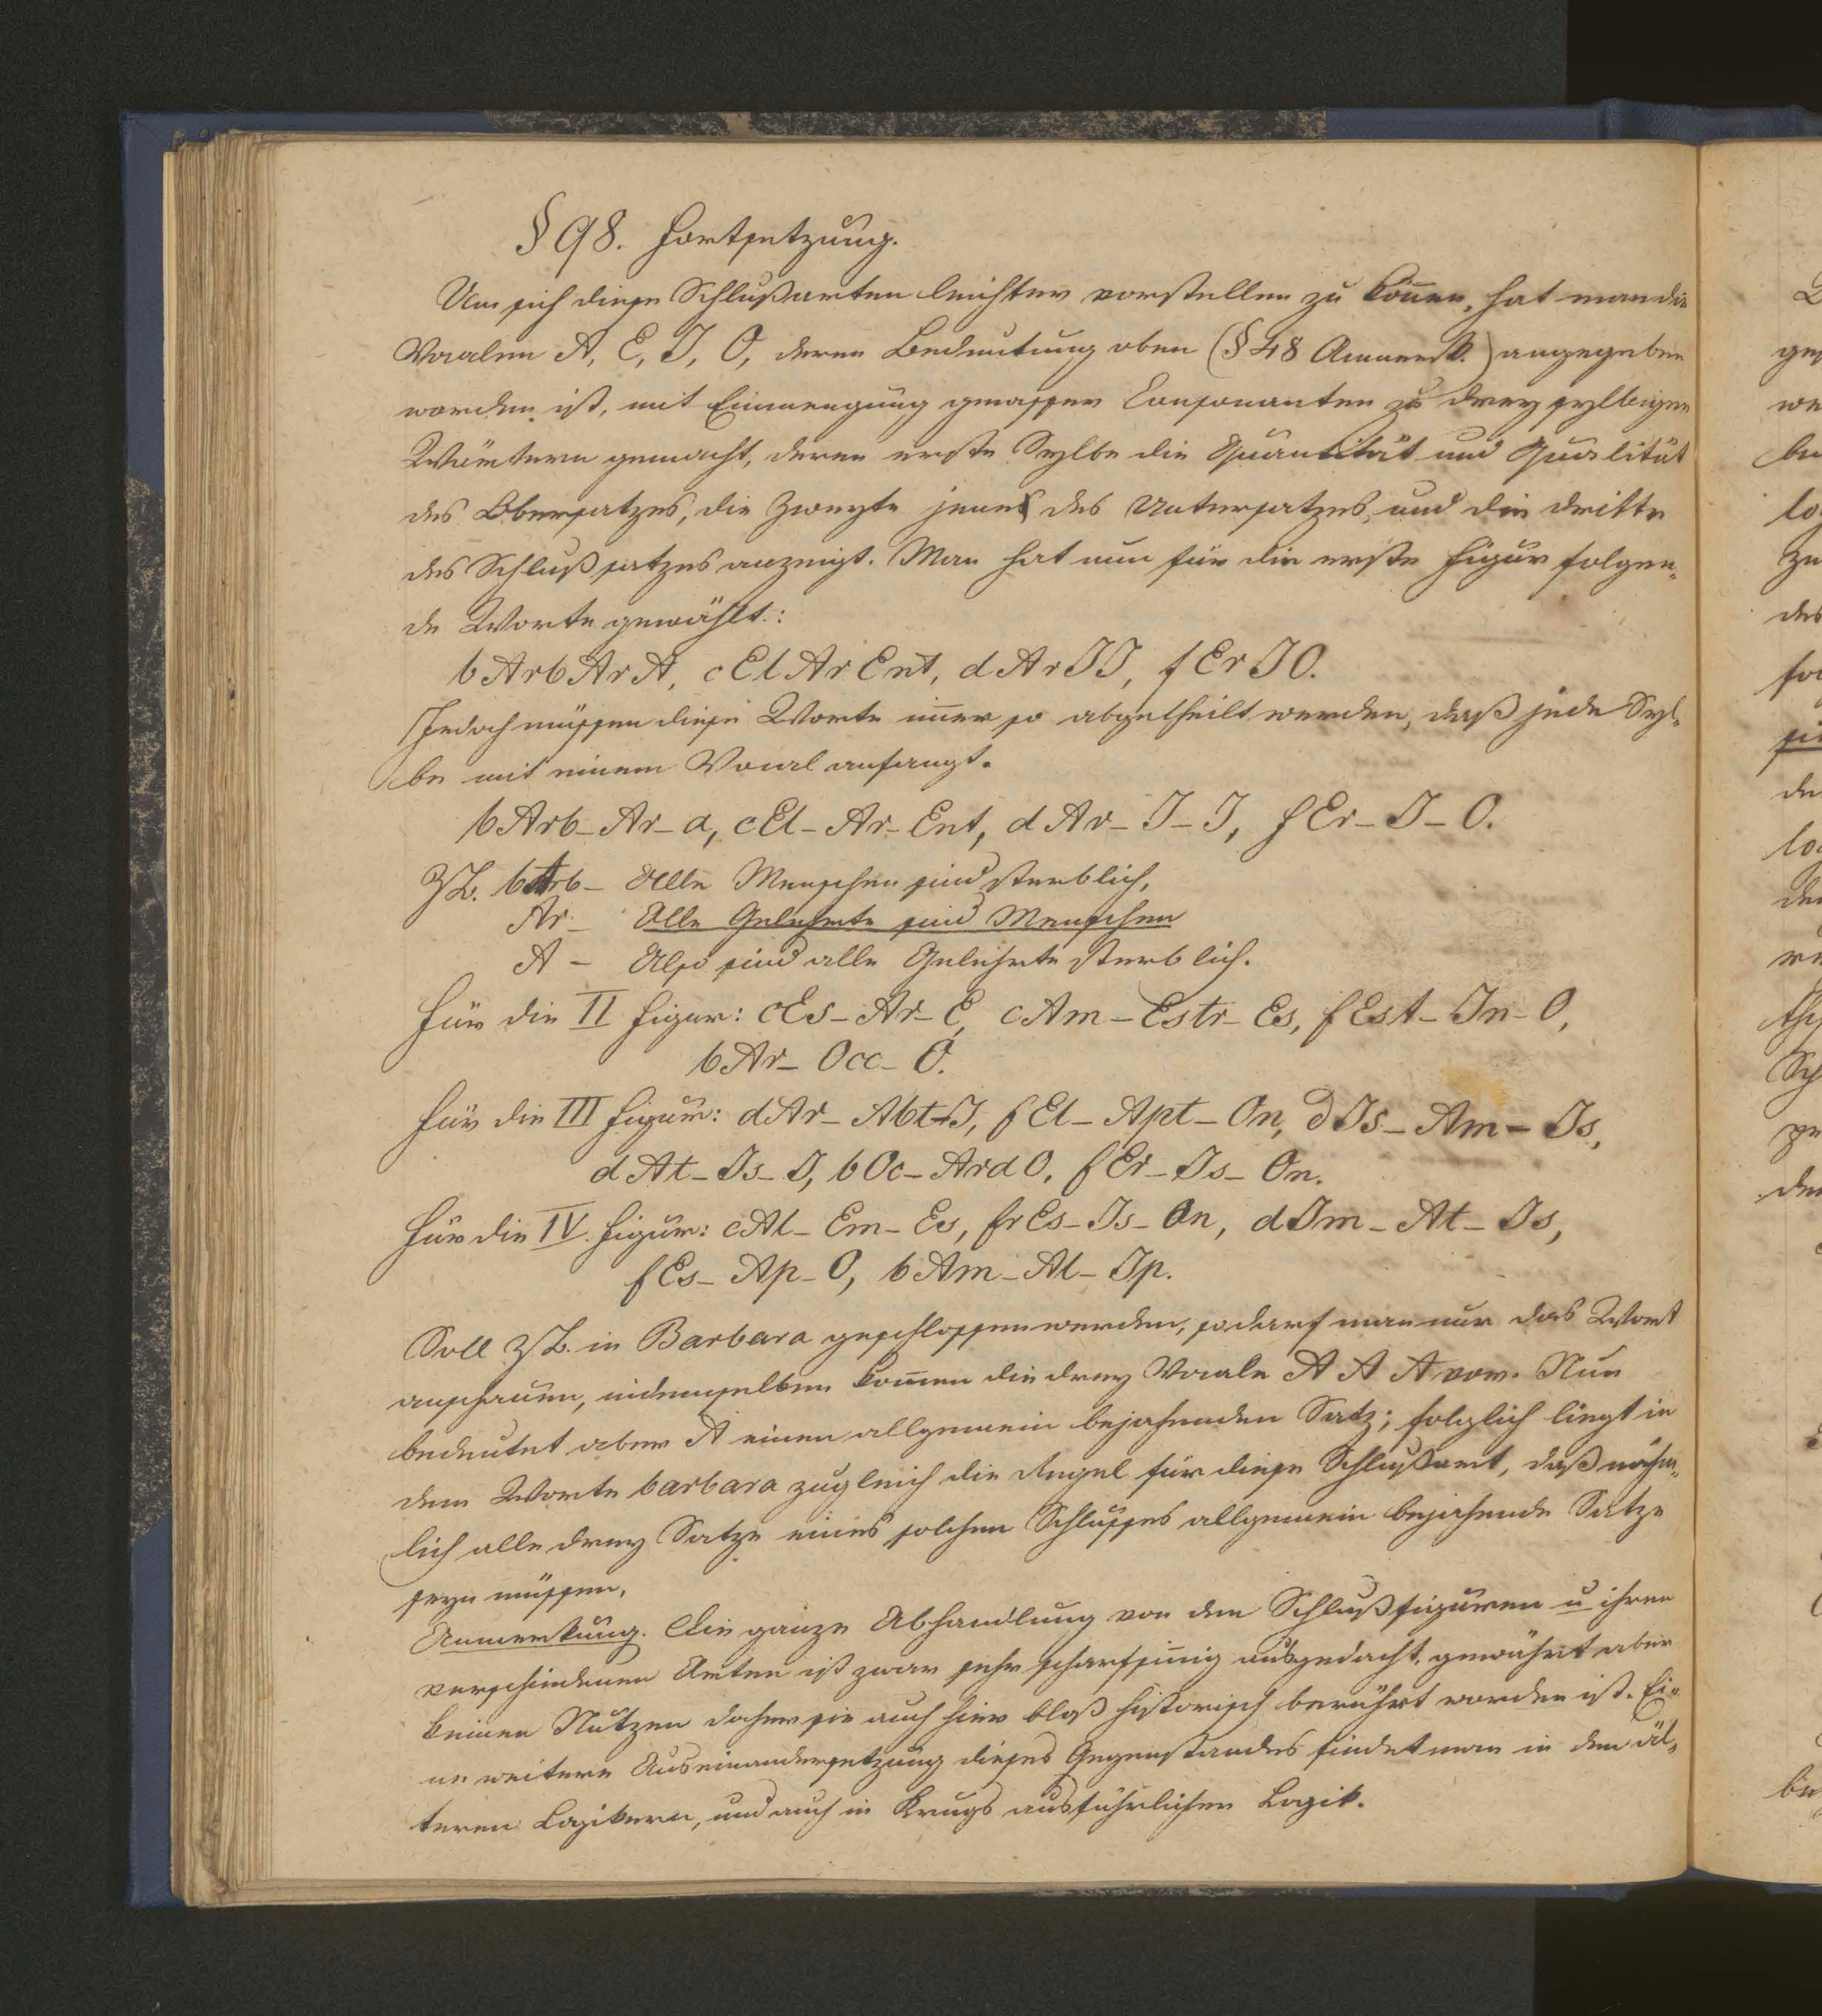 § 98. Fortsetzung.
Um sich diese Schlußarten leichter vorstellen zu kön̄en, hat man die
Vocalen A, E, I, O, deren Bedeutung oben (§ 48 Anmerk.) angegeben
worden ist, mit Einmengung gewisser Consonanten zu dreysylbigen
Wörtern gemacht, deren erste Sylbe die Quantität und Qualität
des Obersatzes, die zweyte jene des Untersatzes, und die dritte
des Schlußsatzes anzeigt. Man hat nun für die erste Figur folgen-
de Worte gewählt:
bArbArA, cElArEnt, dArII, fErIO.
Jedoch müssen diese Worte im̄er so abgetheilt werden, daß jede Syl-
be mit einem Vocal anfangt.
bArb-Ar-a, cEl-Ar-Ent, dAr-I-I, fEr-I-O.
ZB. bArb- Alle Menschen sind sterblich,
Ar- Alle Gelehrte sind Menschen
A - Also sind alle Gelehrte sterblich.
Für die II Figur: cEs-Ar-E, cAm-Estr-Es, fEst-In-O,
bAr-Occ-O.
Für die III Figur: dAr-Apt-I, fEl-Apt-On, dIs-Am-Is,
dAt-Is-I, bOc-ArdO, fEr-Is-On.
Für die IV. Figur: cAl-Em-Es, frEs-Is-On, dIm-At-Is,
fEs-Ap-O, bAm-Al-Ip.
Soll ZB. in Barbara geschlossen werden, so darf man nur das Wort
anschauen, in demselben kom̄en die drey Vocale A A A vor. Nun
bedeutet aber A einen allgemein bejahenden Satz; folglich liegt in
dem Worte barbara zugleich die Regel für diese Schlußart, daß nähm-
lich alle drey Satze eines solchen Schlußes allgemein bejahende Sätze
seyn müssen.
Anmerkung. Die ganze Abhandlung von den Schlußfiguren u ihren
verschiedenen Arten ist zwar sehr scharfsin̄ig ausgedacht, gewährt aber
keinen Nutzen daher sie auch hier bloß historisch berührt worden ist. Ei-
ne weitere Auseinandersetzung dieses Gegenstandes findet man in den äl-
teren Logikern, und auch in Krugs ausführlicher Logik.